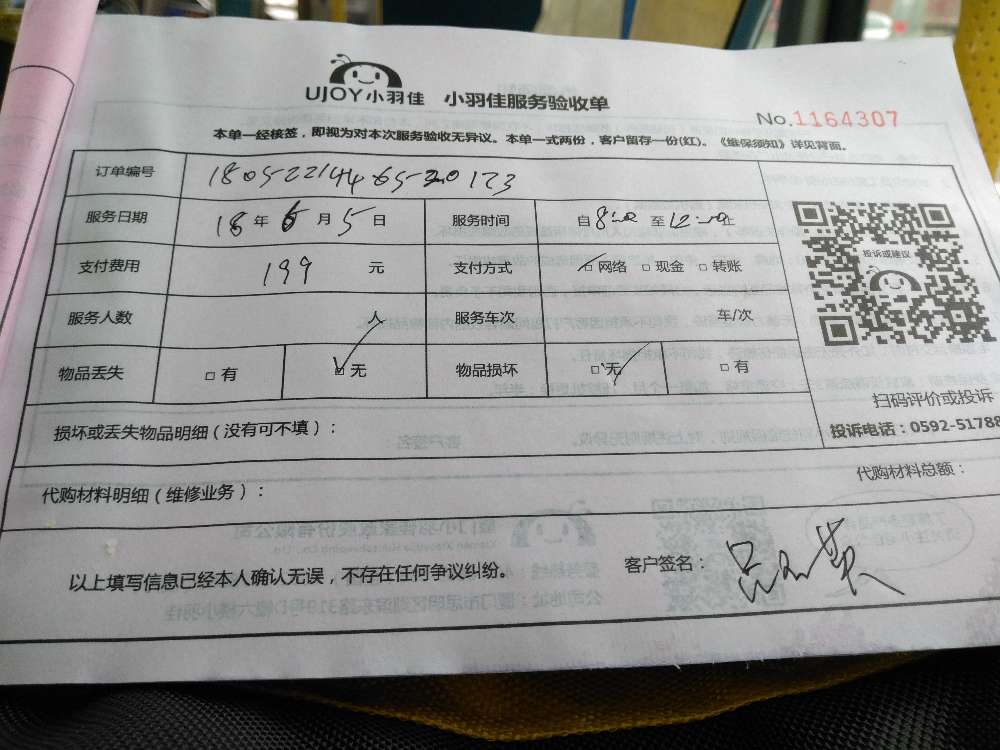 UJOY小羽佳 小羽佳服务验收单
No.1164307
本单一经核签，即视为对本次服务验收无异议。本单一式两份，客户留存一份(红)。《维保须知》详见背面。
订单编号
服务日期 18年6月5日 服务时间 自8:00至12:00止
支付费用 199元 支付方式 网络 现金 转账
服务人数 人 服务车次 车/次
物品丢失 有 无 物品损坏 无 有
投诉或建议
扫码评价或投诉
投诉电话：0592-51788
损坏或丢失物品明细（没有可不填）：
代购材料明细（维修业务）： 代购材料总额：
以上填写信息已经本人确认无误，不存在任何争议纠纷。 客户签名：